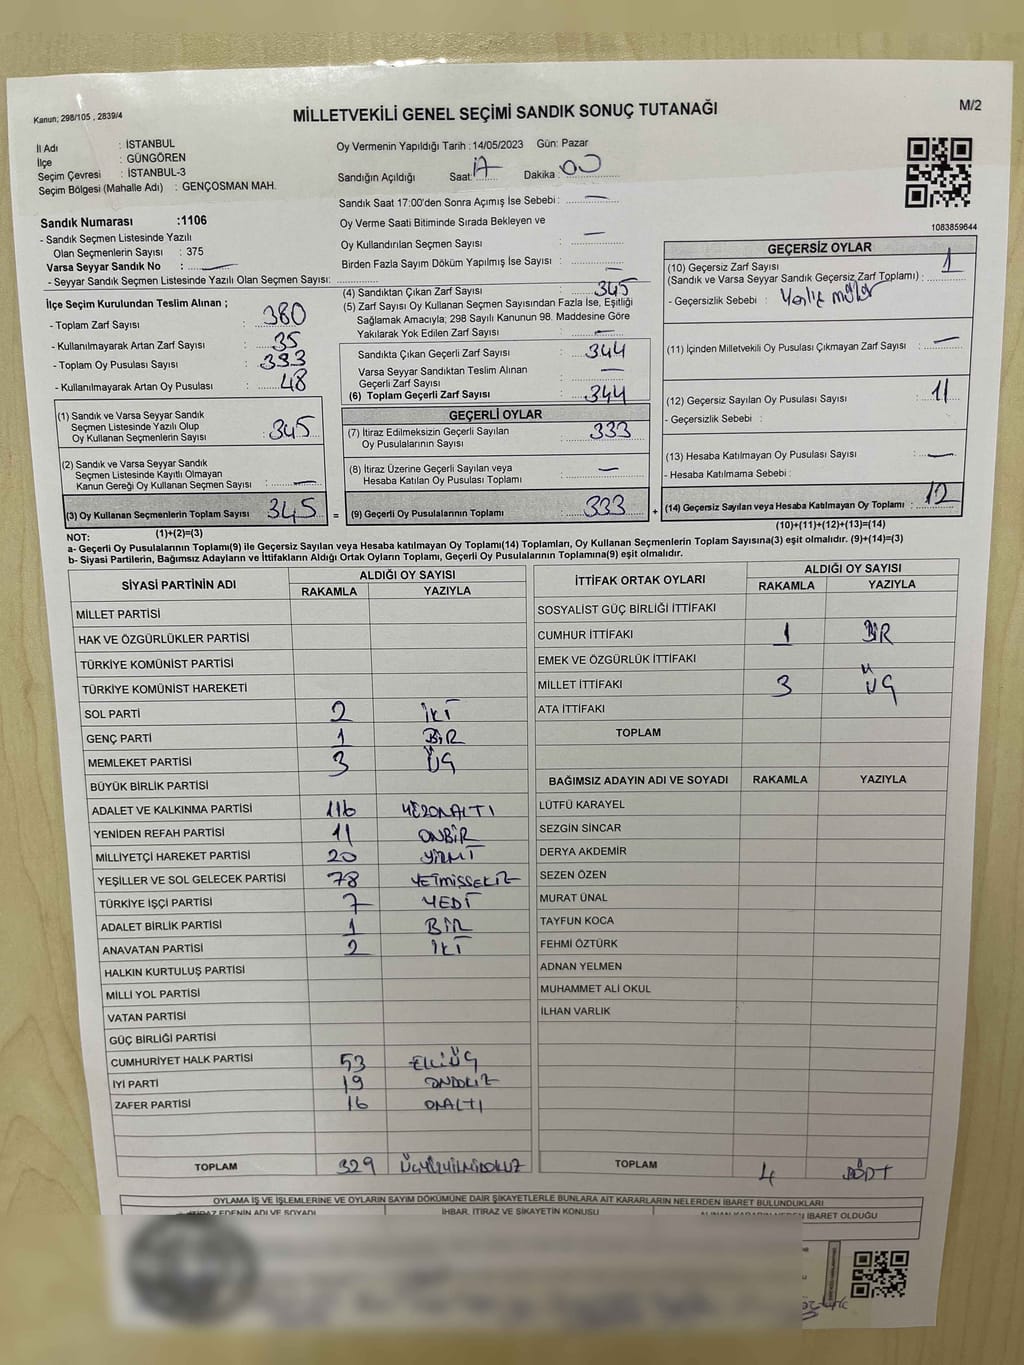 Kanun; 298/105 , 2839/4
MİLLETVEKİLİ GENEL SEÇİMİ SANDIK SONUÇ TUTANAĞI
M/2
İl Adı : İSTANBUL
İlçe : GÜNGÖREN
Seçim Çevresi : İSTANBUL-3
Seçim Bölgesi (Mahalle Adı) : GENÇOSMAN MAH.
Oy Vermenin Yapıldığı Tarih : 14/05/2023 Gün: Pazar
Sandığın Açıldığı Saat: 17 Dakika : 00
Sandık Saat 17:00'den Sonra Açımış İse Sebebi : —
Oy Verme Saati Bitiminde Sırada Bekleyen ve
Oy Kullandırılan Seçmen Sayısı : —
Birden Fazla Sayım Döküm Yapılmış İse Sayısı : —
1083859644
Sandık Numarası :1106
- Sandık Seçmen Listesinde Yazılı
Olan Seçmenlerin Sayısı : 375
Varsa Seyyar Sandık No : —
- Seyyar Sandık Seçmen Listesinde Yazılı Olan Seçmen Sayısı:
İlçe Seçim Kurulundan Teslim Alınan ;
- Toplam Zarf Sayısı : 380
- Kullanılmayarak Artan Zarf Sayısı : 35
- Toplam Oy Pusulası Sayısı : 393
- Kullanılmayarak Artan Oy Pusulası : 48
(1) Sandık ve Varsa Seyyar Sandık
Seçmen Listesinde Yazılı Olup
Oy Kullanan Seçmenlerin Sayısı : 345
(2) Sandık ve Varsa Seyyar Sandık
Seçmen Listesinde Kayıtlı Olmayan
Kanun Gereği Oy Kullanan Seçmen Sayısı : —
(3) Oy Kullanan Seçmenlerin Toplam Sayısı : 345
(1)+(2)=(3)
(4) Sandıktan Çıkan Zarf Sayısı : 345
(5) Zarf Sayısı Oy Kullanan Seçmen Sayısından Fazla İse, Eşitliği
Sağlamak Amacıyla; 298 Sayılı Kanunun 98. Maddesine Göre
Yakılarak Yok Edilen Zarf Sayısı : —
Sandıkta Çıkan Geçerli Zarf Sayısı : 344
Varsa Seyyar Sandıktan Teslim Alınan
Geçerli Zarf Sayısı : —
(6) Toplam Geçerli Zarf Sayısı : 344
GEÇERLİ OYLAR
(7) İtiraz Edilmeksizin Geçerli Sayılan
Oy Pusulalarının Sayısı : 333
(8) İtiraz Üzerine Geçerli Sayılan veya
Hesaba Katılan Oy Pusulası Toplamı : —
= (9) Geçerli Oy Pusulalarının Toplamı : 333 +
GEÇERSİZ OYLAR
(10) Geçersiz Zarf Sayısı
(Sandık ve Varsa Seyyar Sandık Geçersiz Zarf Toplamı) : 1
- Geçersizlik Sebebi :
(11) İçinden Milletvekili Oy Pusulası Çıkmayan Zarf Sayısı : —
(12) Geçersiz Sayılan Oy Pusulası Sayısı : 11
- Geçersizlik Sebebi :
(13) Hesaba Katılmayan Oy Pusulası Sayısı : —
- Hesaba Katılmama Sebebi :
(14) Geçersiz Sayılan veya Hesaba Katılmayan Oy Toplamı : 12
(10)+(11)+(12)+(13)=(14)
NOT:
a- Geçerli Oy Pusulalarının Toplamı(9) ile Geçersiz Sayılan veya Hesaba katılmayan Oy Toplamı(14) Toplamları, Oy Kullanan Seçmenlerin Toplam Sayısına(3) eşit olmalıdır. (9)+(14)=(3)
b- Siyasi Partilerin, Bağımsız Adayların ve İttifakların Aldığı Ortak Oyların Toplamı, Geçerli Oy Pusulalarının Toplamına(9) eşit olmalıdır.
SİYASİ PARTİNİN ADI ALDIĞI OY SAYISI
RAKAMLA YAZIYLA
MİLLET PARTİSİ
HAK VE ÖZGÜRLÜKLER PARTİSİ
TÜRKİYE KOMÜNİST PARTİSİ
TÜRKİYE KOMÜNİST HAREKETİ
SOL PARTİ 2 İKİ
GENÇ PARTİ 1 BİR
MEMLEKET PARTİSİ 3 ÜÇ
BÜYÜK BİRLİK PARTİSİ
ADALET VE KALKINMA PARTİSİ 116 YÜZONALTI
YENİDEN REFAH PARTİSİ 11 ONBİR
MİLLİYETÇİ HAREKET PARTİSİ 20 YİRMİ
YEŞİLLER VE SOL GELECEK PARTİSİ 78 YETMİŞSEKİZ
TÜRKİYE İŞÇİ PARTİSİ 7 YEDİ
ADALET BİRLİK PARTİSİ 1 BİR
ANAVATAN PARTİSİ 2 İKİ
HALKIN KURTULUŞ PARTİSİ
MİLLİ YOL PARTİSİ
VATAN PARTİSİ
GÜÇ BİRLİĞİ PARTİSİ
CUMHURİYET HALK PARTİSİ 53 ELLİÜÇ
İYİ PARTİ 19 ONDOKUZ
ZAFER PARTİSİ 16 ONALTI
TOPLAM 329 ÜÇYÜZYİRMİDOKUZ
İTTİFAK ORTAK OYLARI ALDIĞI OY SAYISI
RAKAMLA YAZIYLA
SOSYALİST GÜÇ BİRLİĞİ İTTİFAKI
CUMHUR İTTİFAKI 1 BİR
EMEK VE ÖZGÜRLÜK İTTİFAKI
MİLLET İTTİFAKI 3 ÜÇ
ATA İTTİFAKI
TOPLAM
BAĞIMSIZ ADAYIN ADI VE SOYADI RAKAMLA YAZIYLA
LÜTFÜ KARAYEL
SEZGİN SİNCAR
DERYA AKDEMİR
SEZEN ÖZEN
MURAT ÜNAL
TAYFUN KOCA
FEHMİ ÖZTÜRK
ADNAN YELMEN
MUHAMMET ALİ OKUL
İLHAN VARLIK
TOPLAM 4 DÖRT
OYLAMA İŞ VE İŞLEMLERİNE VE OYLARIN SAYIM DÖKÜMÜNE DAİR ŞİKAYETLERLE BUNLARA AİT KARARLARIN NELERDEN İBARET BULUNDUKLARI
İTİRAZ EDENİN ADI VE SOYADI İHBAR, İTİRAZ VE ŞİKAYETİN KONUSU ALINAN KARARIN NEDEN İBARET OLDUĞU